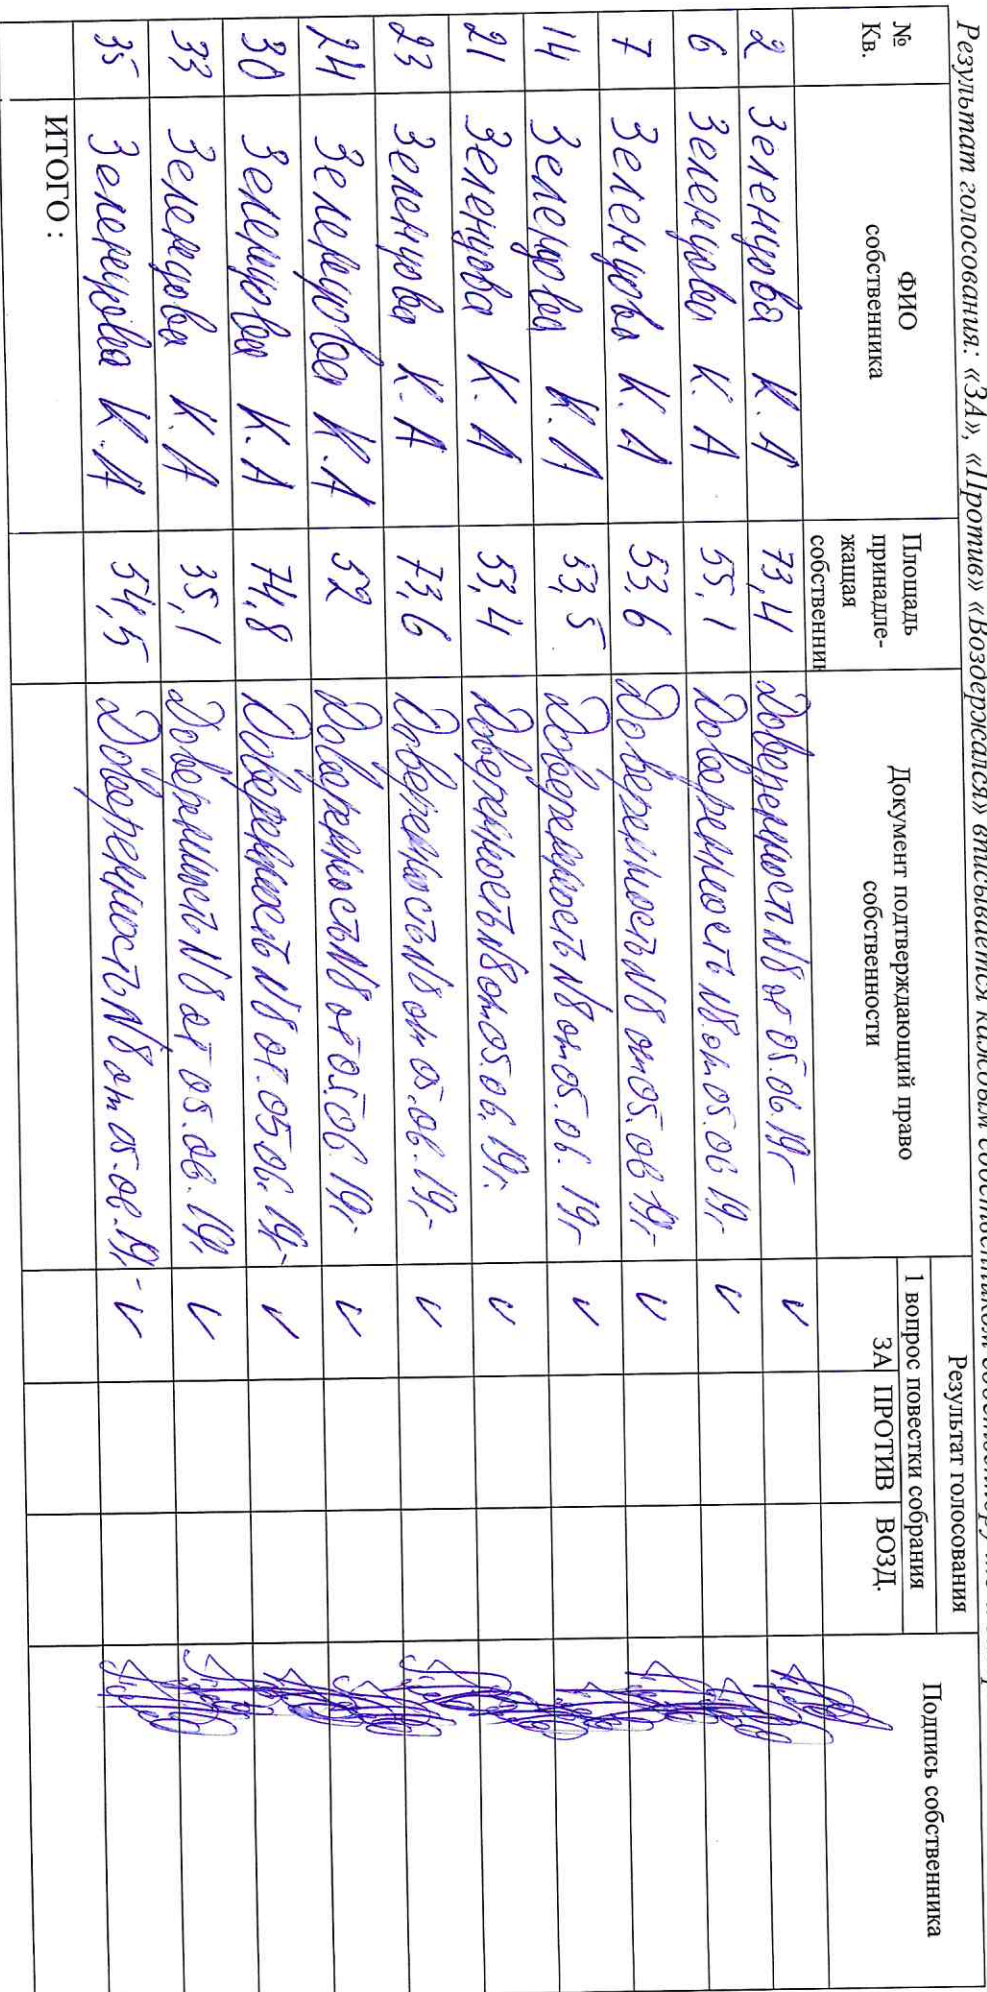 Результат голосования: «ЗА», «Против» «Воздержался» вписывается каждым собственником
№ Кв. ФИО собственника Площадь принадле-жащая собственни Документ подтверждающий право собственности Результат голосования Подпись собственника
1 вопрос повестки собрания
ЗА ПРОТИВ ВОЗД.
2 Зеленцова К.А 73,4 Доверенность №8 от 05.06.19г v
6 Зеленцова К.А 55,1 Доверенность №8 от 05.06 19г v
7 Зеленцова К.А 53,6 Доверенность №8 от 05.06 19г v
14 Зеленцова К.А 53,5 Доверенность №8 от 05.06.19г v
21 Зеленцова К.А 53,4 Доверенность №8 от 05.06.19г. v
23 Зеленцова К.А 73,6 Доверенность №8 от 05.06.19г v
24 Зеленцова К.А 52 Доверенность №8 от 05.06.19г v
30 Зеленцова К.А 74,8 Доверенность №8 от.05.06.19г v
33 Зеленцова К.А 35,1 Доверенность №8 от 05.06.19г v
35 Зеленцова К.А 54,5 Доверенность №8 от 05.06.19г v
ИТОГО: